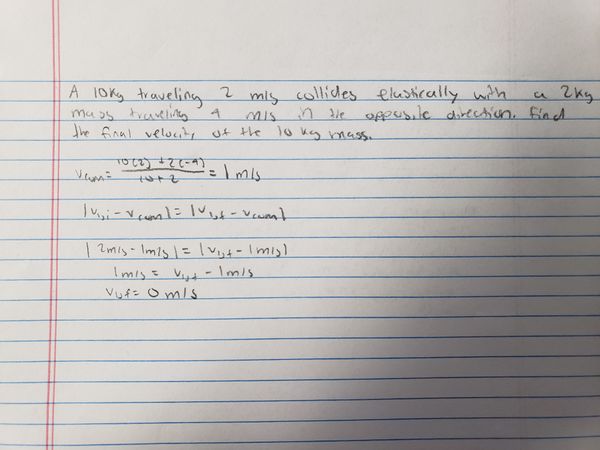 A 10kg traveling 2 m/s collides elastically with a 2kg
mass traveling 4 m/s in the opposite direction. Find
the final velocity of the 10 kg mass.
Vcom = (10(2) + 2(-4))/(10+2) = 1 m/s
|V1,i - Vcom| = |V1,f - Vcom|
|2m/s - 1m/s| = |V1,f - 1m/s|
1m/s = V1,f - 1m/s
V1,f = 0 m/s